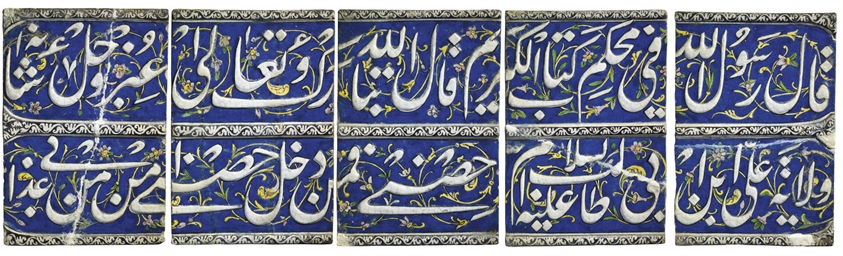 قال رسول الله في محكم كتابه الكريم قال الله تبارك وتعالى عز وجل شانه
ولاية علي ابن ابي طالب عليه السلام حصني فمن دخل حصني امن من عذابي